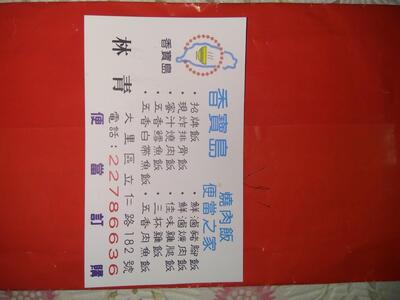 香寶島 燒肉飯
便當之家
・招牌飯 ・鮮滷豬腳飯
・現炸排骨飯 ・鮮滷爌肉飯
・蜜汁燒肉飯 ・佳味雞腿飯
・五香鱈魚飯 ・三杯雞飯
・五香白帶魚飯 ・五香肉魚飯
香寶島
林青
大里區立仁路182號
電話:22786636
便當訂購